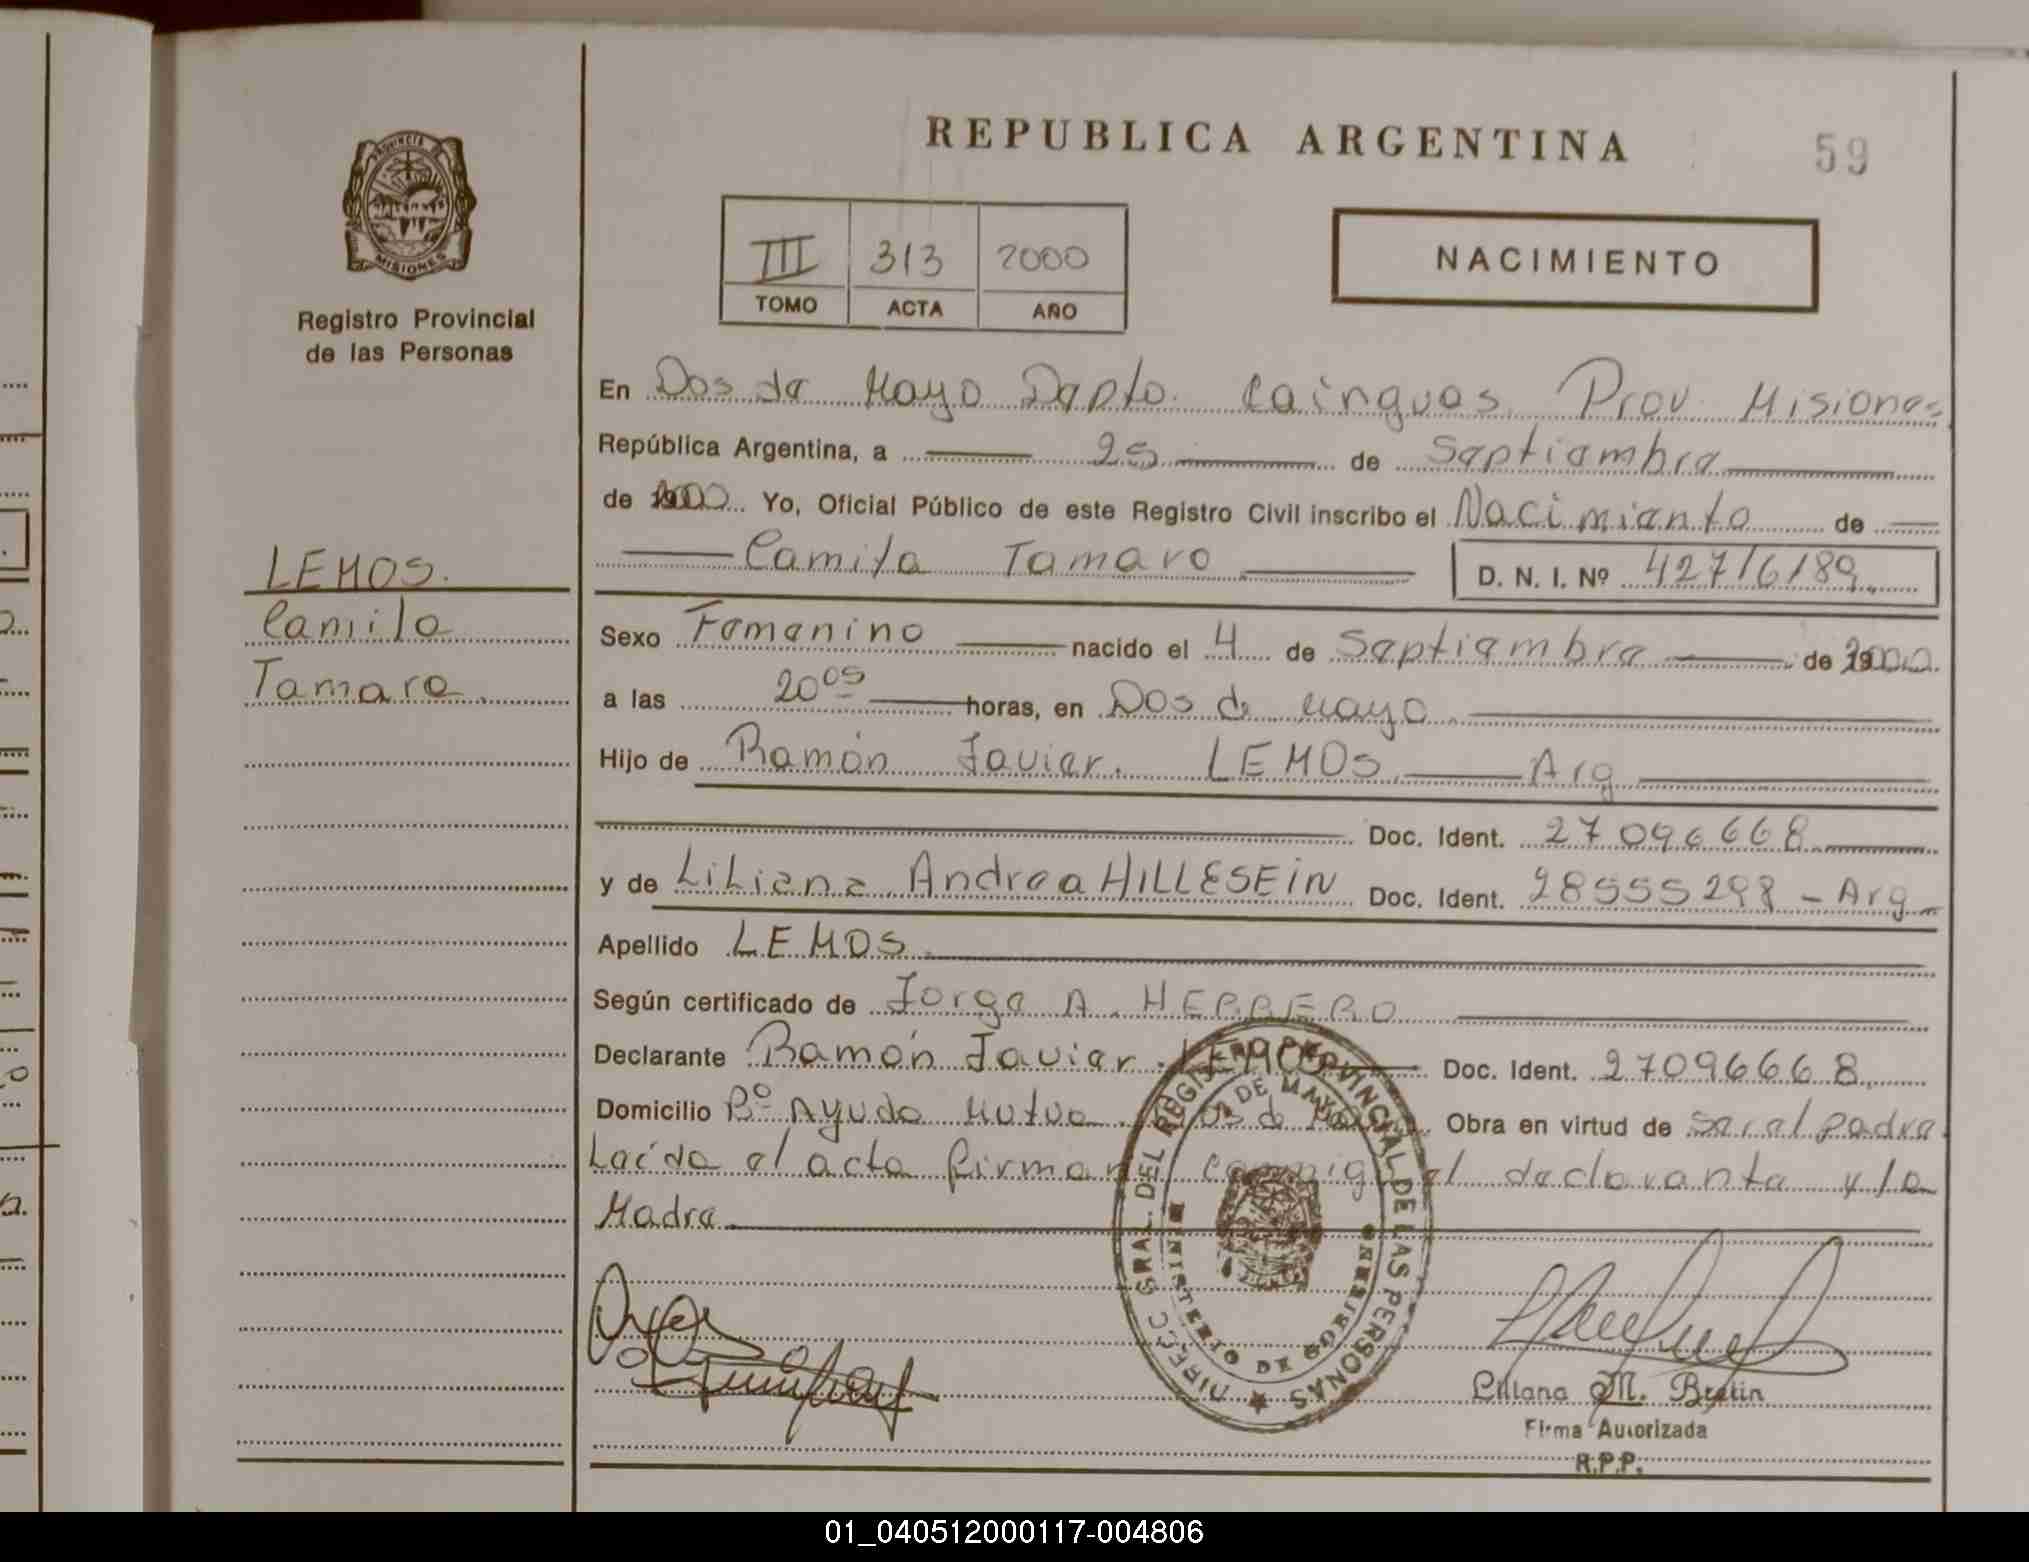 REPUBLICA ARGENTINA
59
PROVINCIA DE
MISIONES
Registro Provincial
de las Personas
III 313 2000
TOMO ACTA AÑO
NACIMIENTO
En Dos de Mayo Dapto. Cainguas Prov. Misiones
República Argentina, a 25 de Septiembre
de 2000 Yo, Oficial Público de este Registro Civil inscribo el Nacimiento de
Camila Tamara D. N. I. Nº 42716189
LEMOS.
Camila
Tamara
Sexo Femenino nacido el 4 de Septiembre de 2000
a las 20 05 horas, en Dos de Mayo
Hijo de Ramón Javier. LEMOS Arg
Doc. Ident. 27096668
y de Liliana Andrea HILLESEIN Doc. Ident. 28555298 - Arg -
Apellido LEMOS
Según certificado de Jorge A. HERRERO
Declarante Ramón Javier. LEMOS Doc. Ident. 27096668
Domicilio Bº Ayuda Mutua. Dos de Obra en virtud de ser el padre
Leída el acta firman conmigo el declarante y la
Madre
DIRECC GRAL. DEL REGISTRO PROVINCIAL DE LAS PERSONAS
2 DE MAYO
MINISTERIO DE GOBIERNO
Liliana M. Bretin
Firma Autorizada
R.P.P.
01_040512000117-004806